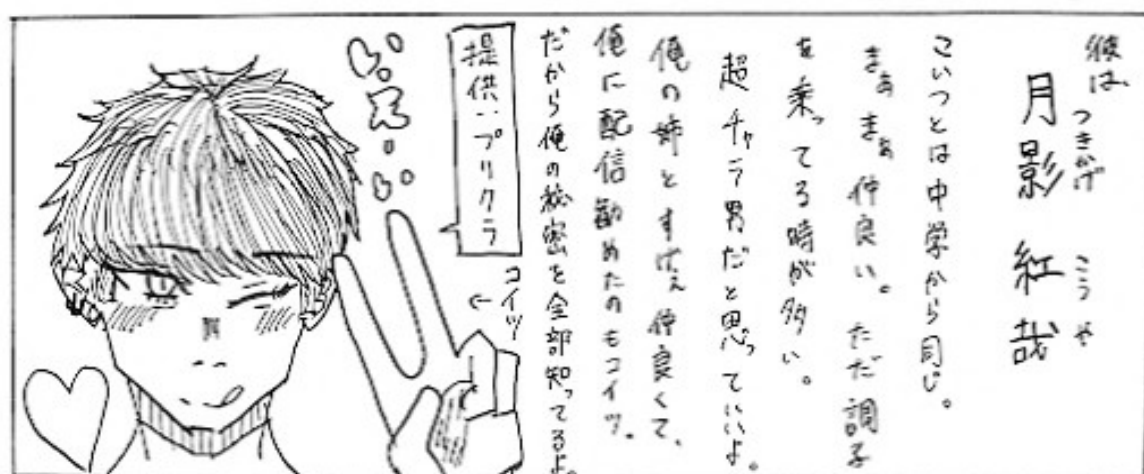 彼は、
つきかげ こうや
月影 紅哉
こいつとは中学から同じ。
まぁまぁ仲良い。ただ調子
を乗ってる時が多い。
超チャラ男だと思っていいよ。
俺の姉とすげぇ仲良くて、
俺に配信勧めたのもコイツ。
だから俺の秘密を全部知ってるよ。
コイツ
提供:プリクラ
いえーい